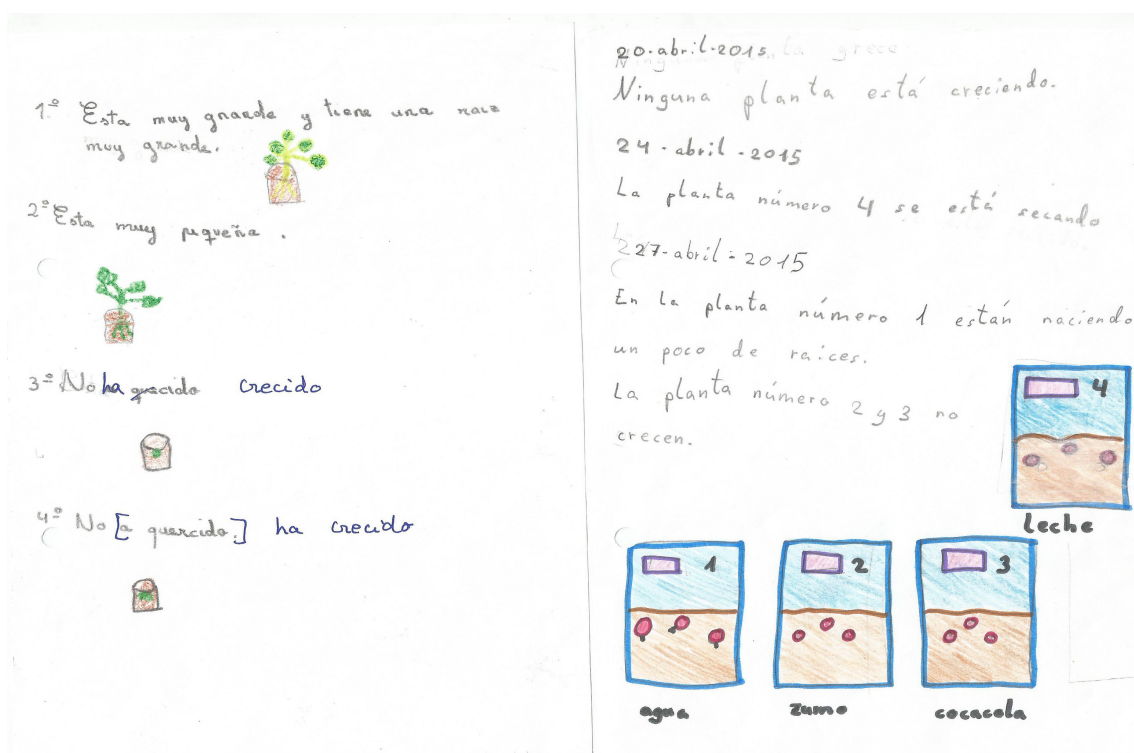 1º Esta muy grande y tiene una raiz
muy grande.
2º Esta muy pequeña.
3º No ha crecido
4º No [a quercido.] ha crecido
20-abril-2015
Ninguna planta está creciendo.
24-abril-2015
La planta número 4 se está secando
27-abril-2015
En la planta número 1 están naciendo
un poco de raíces.
La planta número 2 y 3 no
crecen.
4
leche
1
2
3
agua
zumo
cocacola